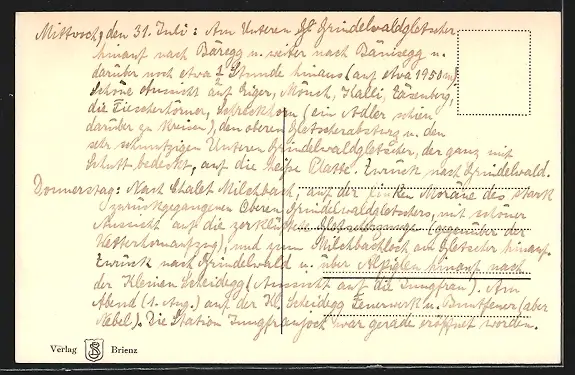 Mittwoch, den 31. Juli: Am Unteren Grindelwaldgletscher
hinauf nach Bäregg u. weiter nach Bänisegg u.
darüber noch etwa ½ Stunde hinaus (auf etwa 1950 m).
Schöne Aussicht auf Eiger, Mönch, Kalli, Zäsenberg,
die Fiescherhörner, Schreckhorn (ein Adler schien
darüber zu kreisen), den oberen Gletscherabsturz u. den
sehr schmutzigen Unteren Grindelwaldgletscher, der ganz mit
Schutt bedeckt, auf die heiße Platte. Zurück nach Grindelwald.
Donnerstag: Nach Chalet Milchbach, auf der linken Moräne des stark
zurückgegangenen Oberen Grindelwaldgletschers, mit schöner
Aussicht auf die zerklüftete (gegenüber der
Wetterhornaufzug), und zum Milchbachloch am Gletscher hinauf.
Zurück nach Grindelwald u. über Alpiglen hinauf nach
der Kleinen Scheidegg (Aussicht auf die Jungfrau). Am
Abend (1. Aug.) auf der Kl. Scheidegg Feuerwerk u. (aber
Nebel). Die Station Jungfraujoch war gerade eröffnet worden.
Verlag Brienz